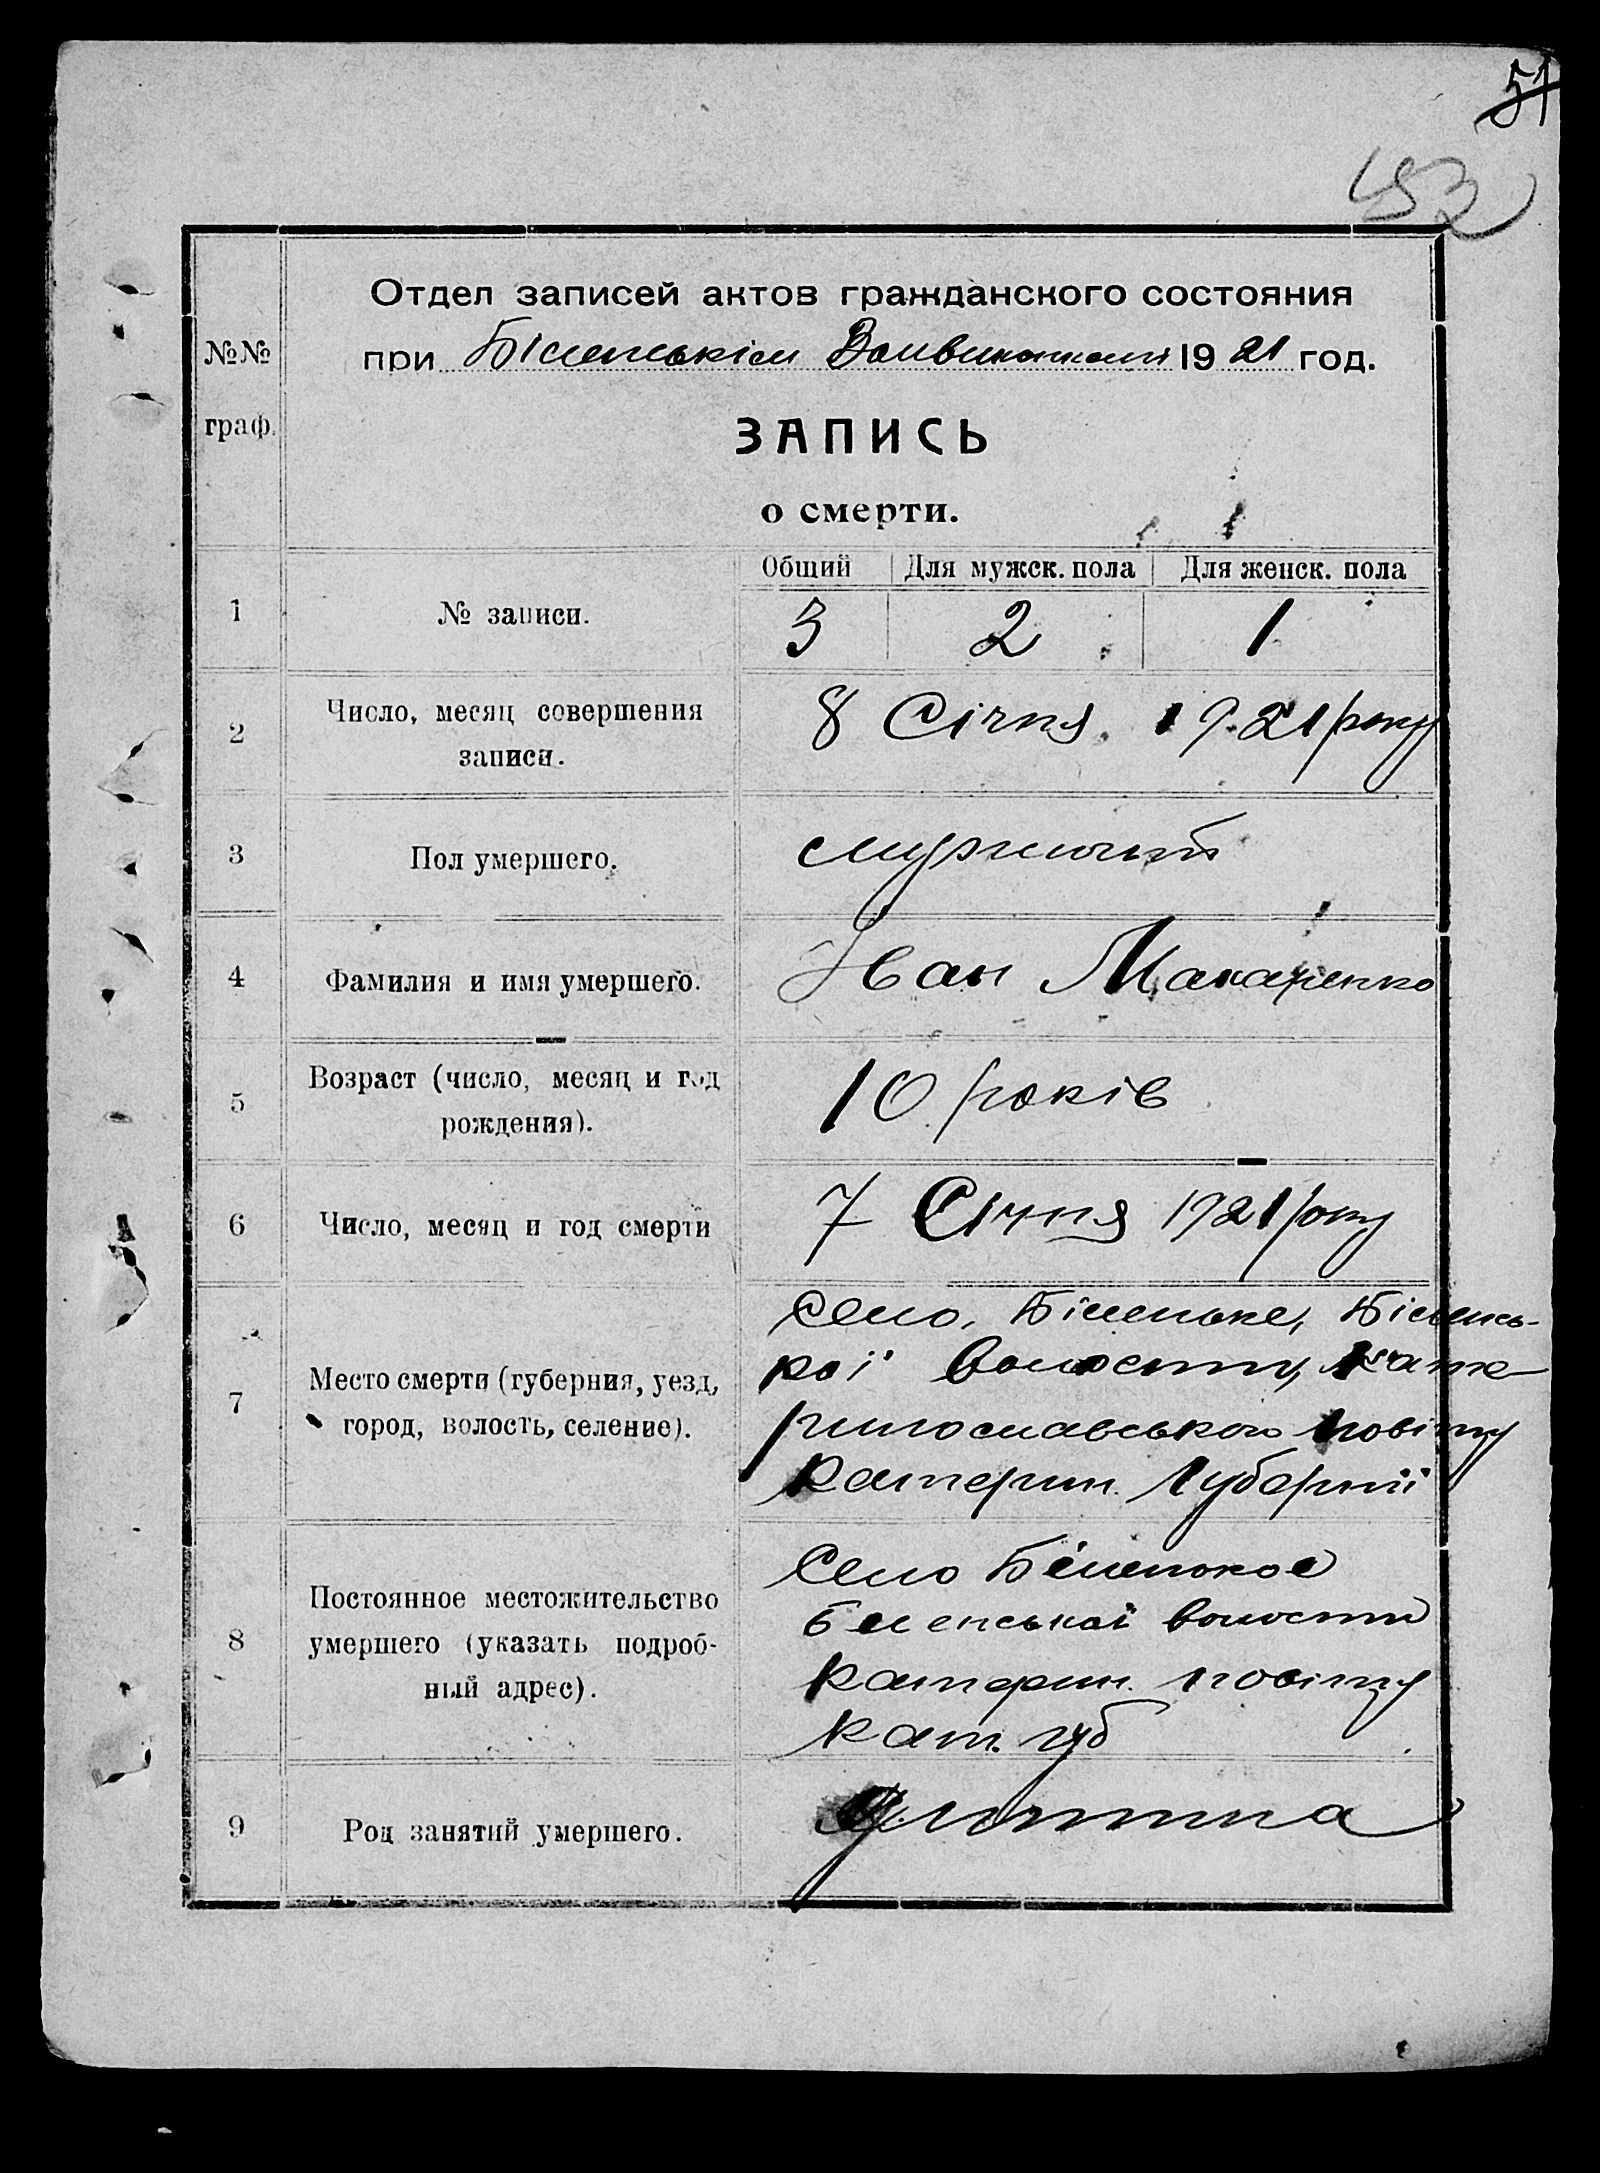 51
№№
граф.
Отдел записей актов гражданского состояния
при Біленькім Волвиконкомі 1921 год.
ЗАПИСЬ
о смерти.
Общий Для мужск. пола Для женск. пола
1 № записи. 3 2 1
2 Число, месяц совершения
записи.
8 Січня 1921 року
3 Пол умершего.
4 Фамилия и имя умершего. Іван Макаренко
5 Возраст (число, месяц и год
рождения).
10 років
6 Число, месяц и год смерти 7 Січня 1921 року
7 Место смерти (губерния, уезд,
город, волость, селение).
Село, Біленьке, Біленсь-
кої Волости, Кате
ринославського повіту
Катерин. Губернії
8 Постоянное местожительство
умершего (указать подроб-
ный адрес).
Село Біленькое
Біленської волости
Катерин. повіту
Кат. губ
9 Род занятий умершего.